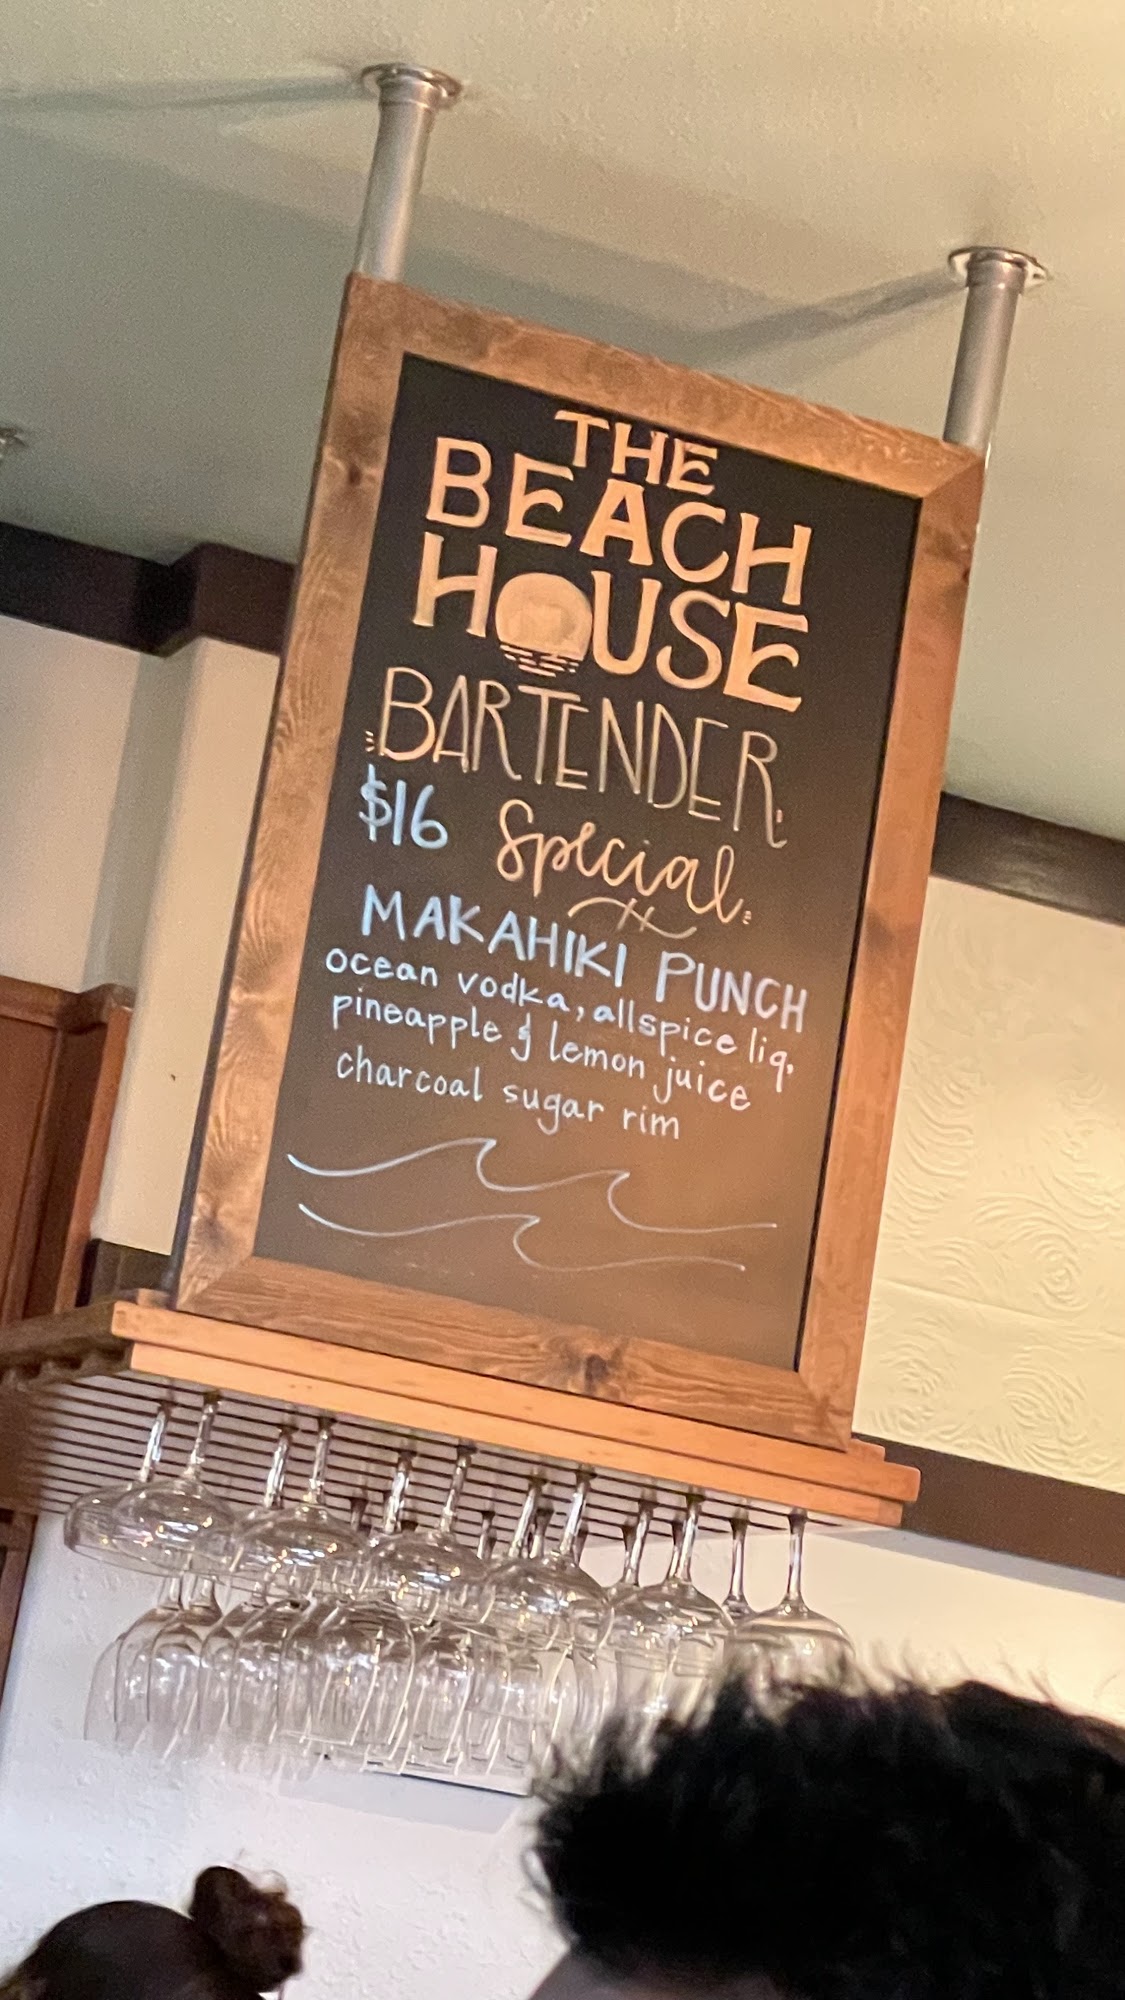 THE
BEACH
HOUSE
BARTENDER
$16 Special
MAKAHIKI PUNCH
ocean vodka, allspice liq,
pineapple & lemon juice
charcoal sugar rim